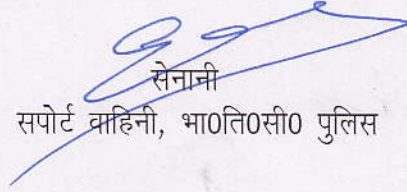 सेनानी
सपोर्ट वाहिनी, भा0ति0सी0 पुलिस